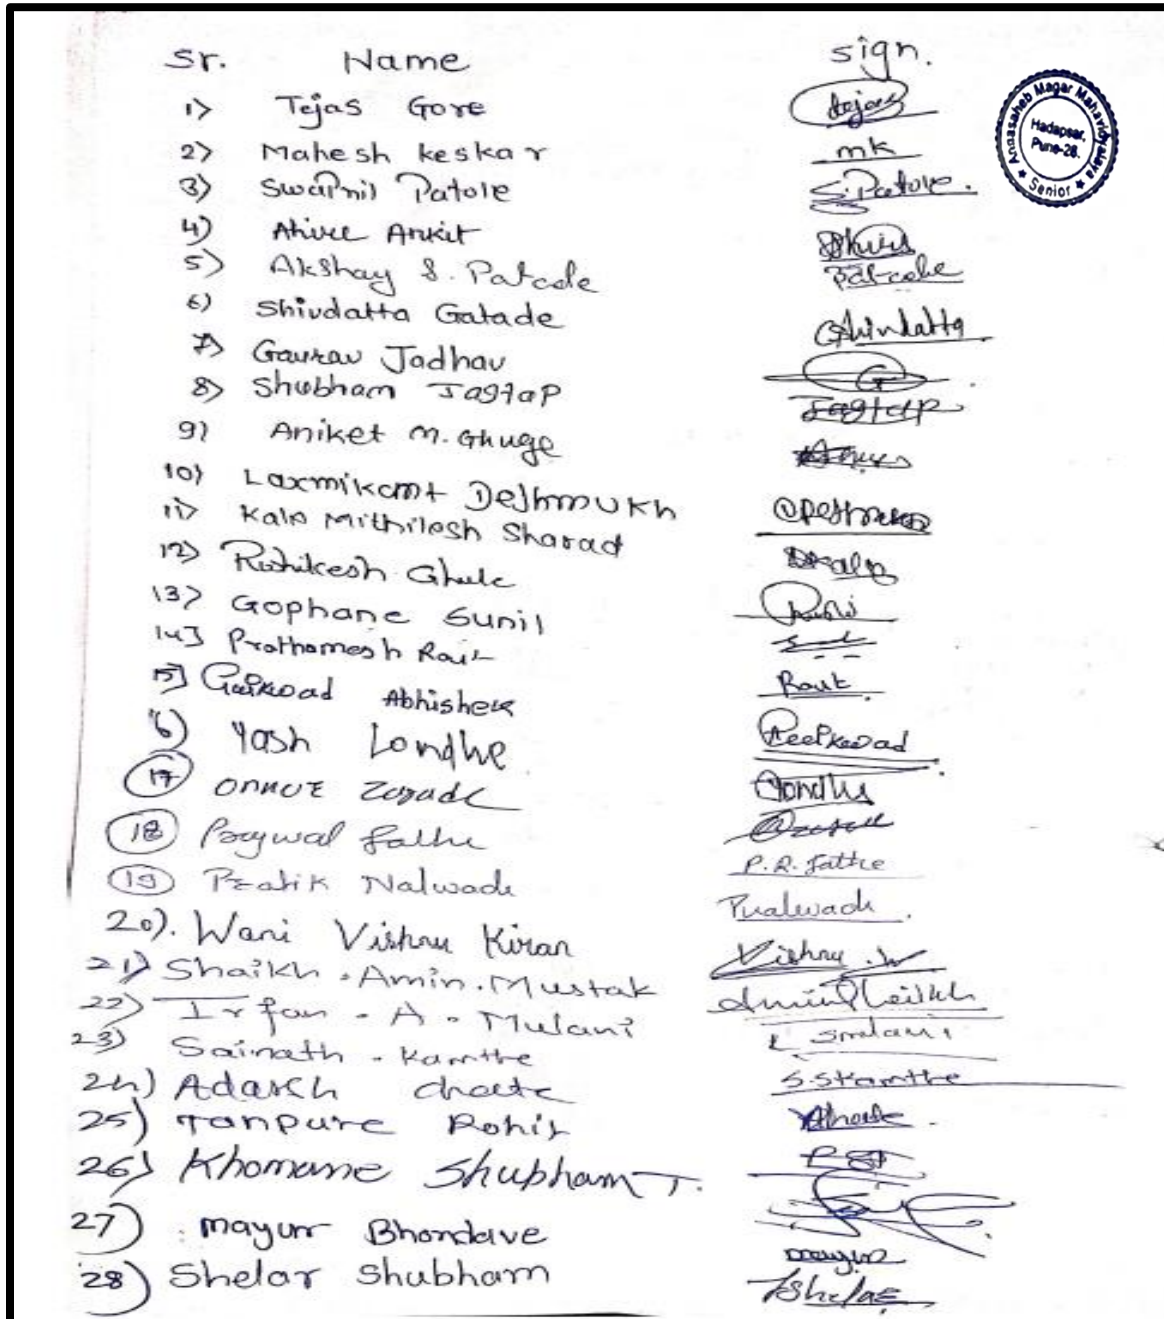 Sr. Name sign.
1) Tejas Gore tejas
2) Mahesh keskar mk
3) Swapnil Patole S. Patole.
4) Ahire Ankit
5) Akshay S. Patode Patcode
6) Shivdatta Gatade Shivdatta
7) Gaurav Jadhav G
8) Shubham Jagtap Jagtap
9) Aniket M. Ghuge
10) Laxmikant Deshmukh
11) Kale Mithilesh Sharad
12) Rushikesh Ghule Kale
13) Gophane Sunil Rushi
14) Prathamesh Raut
15) Gaikwad Abhishek Raut.
16) Yash Londhe
17) Omkar Zagade Londhe
18) Prajwal Jathe
19) Pratik Nalwade P.R. Jathe
20). Wani Vishnu Kiran Pnalwade.
21) Shaikh . Amin . Mustak Vishnu . W
22) Irfan . A . Mulani Amin Sheikh
23) Sainath . Kamthe
24) Adarsh choate S.S Kamthe
25) Tanpure Rohit
26) Khomane Shubham T.
27) Mayur Bhondave
28) Shelar Shubham mayur
Shelar
Annasaheb Magar Mahavidyalaya
Hadapsar,
Pune-28.
★ Senior ★